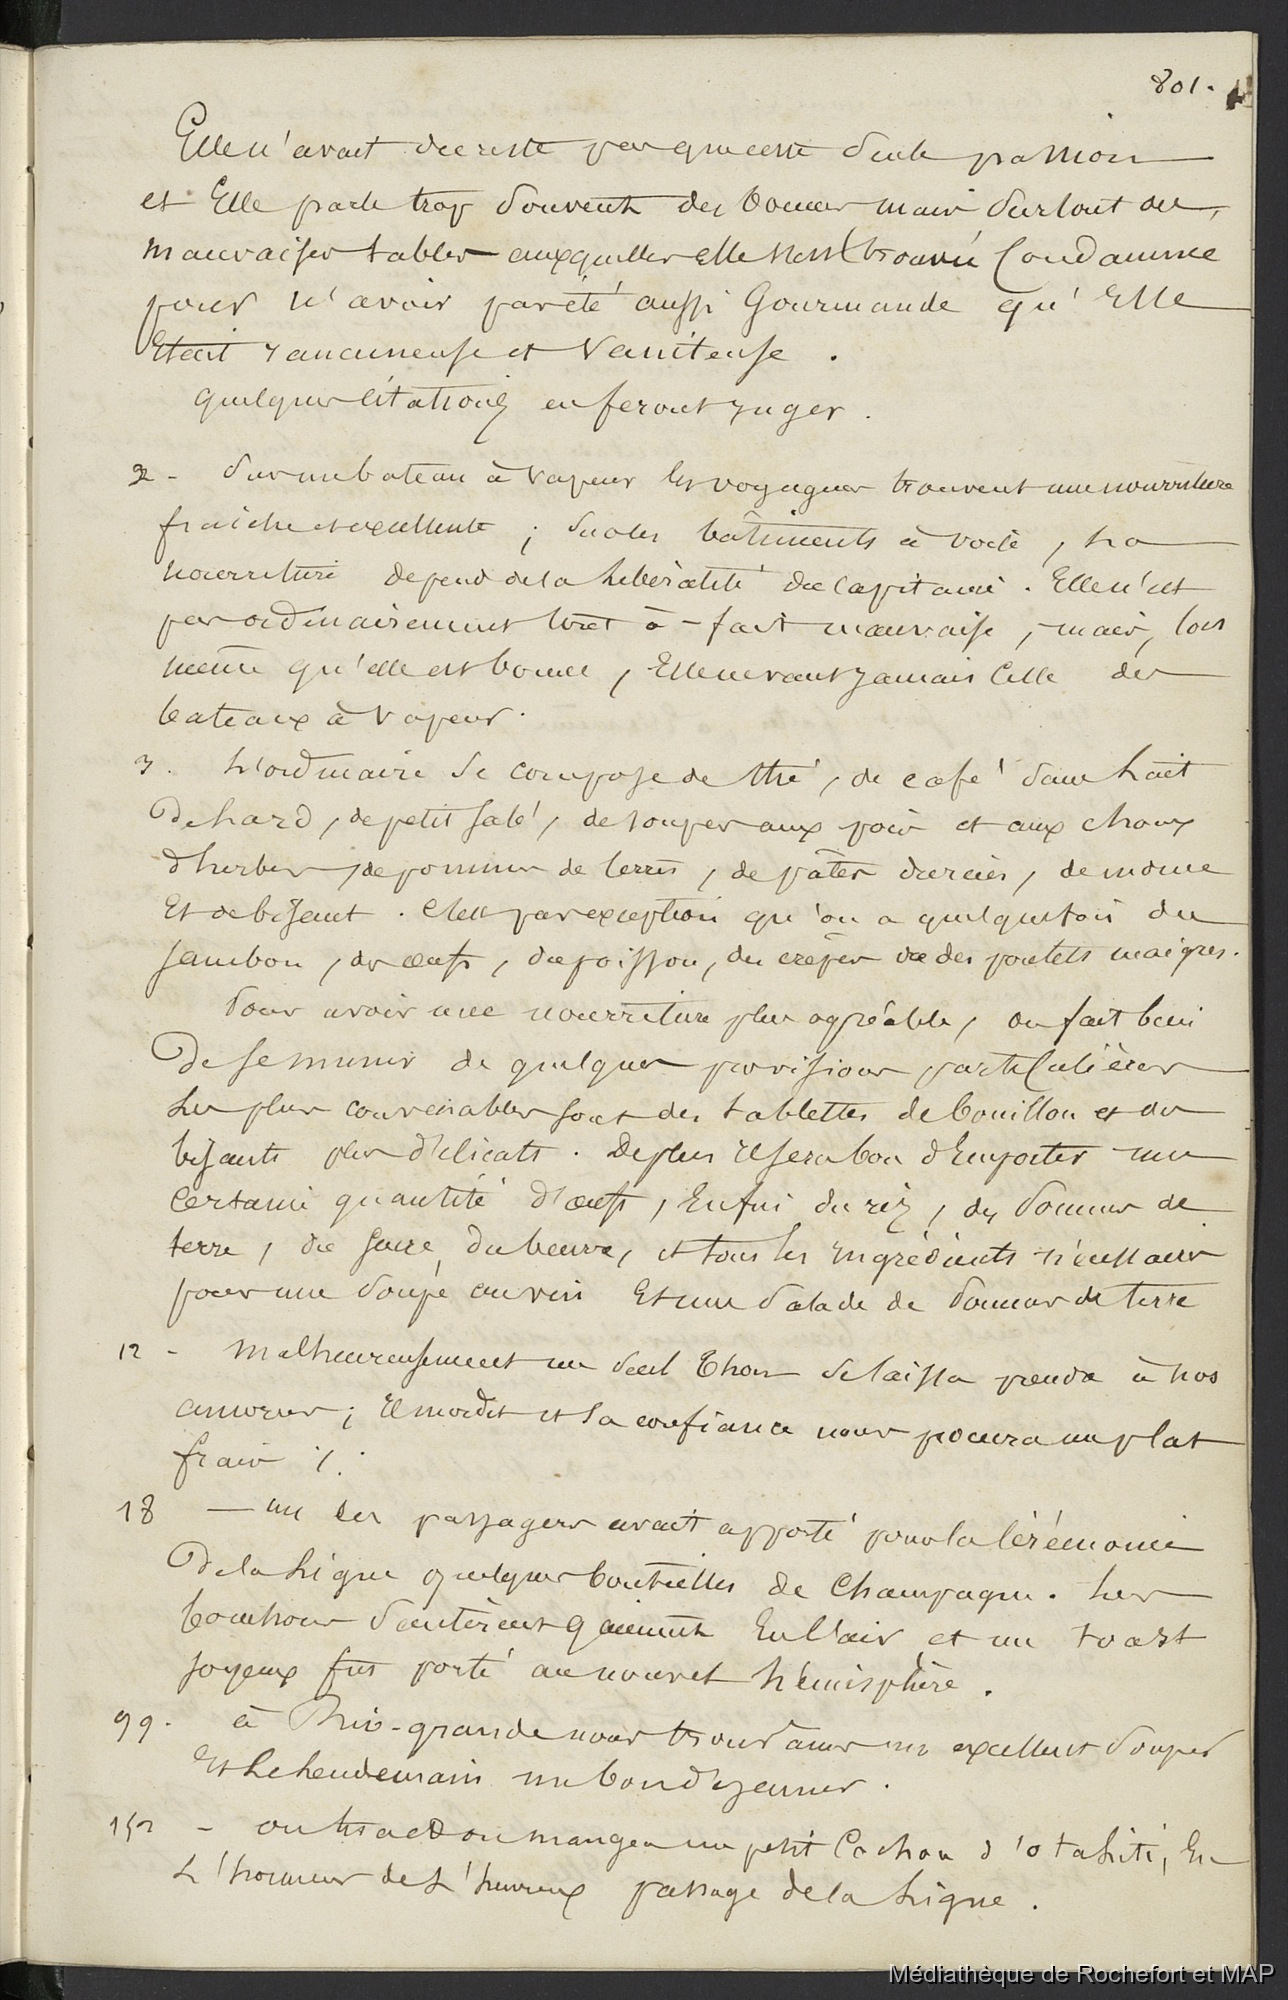 801.
Elle n'avait du reste pas que cette seule passion
et Elle parle trop souvent des bonnes mais surtout des
mauvaises tables auxquelles elle s'est trouvée Condamnée
pour n'avoir pas été aussi Gourmande qu'Elle
Etait rancuneuse et Vaniteuse .
quelques citations en feront juger .
2 - Sur un bateau à Vapeur les voyageurs trouvent une nourriture
fraiche et excellente ; Sur les bâtiments à voile , la
nourriture depend de la libéralité du Capitaine . Elle n'est
pas ordinairement tout à-fait mauvaise , mais, lors
même qu'elle est bonne , Elle ne vaut jamais Celle des
bateaux à Vapeur .
3 . L'ordinaire se compose de thé , de café sans Lait
De Lard , de petit salé , de soupes aux pois et aux choux
d'herbes , de pommes de terre , de pâtes durcies , de morue
Et de biscuit . C'est par exception qu'on a quelquefois du
jambon , des œufs , du poisson , des crêpes ou des poulets maigres .
Pour avoir une nourriture plus agréable , on fait bien
De se munir de quelques provisions particulières
Les plus convenables sont des tablettes de bouillon et des
biscuits plus délicats . De plus il sera bon d'Emporter une
Certaine quantité d'œufs , Enfin du riz , des Pommes de
terre , du sucre , du beurre , et tous les ingrédients nécessaires
pour une Soupe au vin Et une Salade de Pommes de terre
12 - malheureusement un seul thon se laissa prendre à nos
amorces ; Il mordit et sa confiance nous procura un plat
frais ./.
18 — un des passagers avait apporté pour la Cérémonie
De la Ligne quelques bouteilles de Champagne . Les
bouchons sautèrent gaiement En l'air et un toast
joyeux fut porté au nouvel hémisphère .
99 . à Rio-grande nous trouvâmes un excellent souper
Et Le Lendemain un bon déjeuner .
152 - on tua et on mangea un petit Cochon d'otahiti , En
L'honneur de L'heureux passage de la Ligne .
Médiathèque de Rochefort et MAP